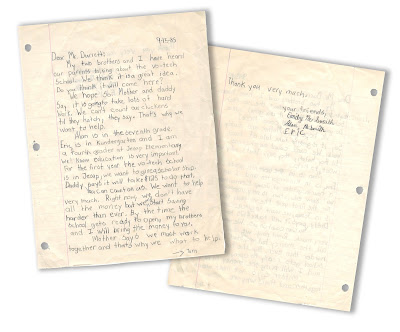 9-15-85
Dear Mr. Durrett:
My two brothers and I have heard
our parents talking about the vo-tech
school. We think it is a great idea.
Do you think it will come here?
We hope so! Mother and daddy
say it is going to take lots of hard
work. We can't count our chickens
til they hatch, they says. That's why we
want to help.
Alan is in the seventh grade,
Eric is in Kindergarten and I am
a fourth grader at Jesup Elementary
We know education is very important!
For the first year the vo-tech School
is in Jesup, we want to give a scholarship.
Daddy says it will take $125 to do that.
You can count on us. We want to help
very much. Right now, we don't have
all the money but we start saving
harder than ever. By the time the
School gets ready to open, my brothers
and I will bring the money to you.
Mother says we must work
together and that's why we want to help.
→ Turn
Thank you very much.
your friends,
Emily
Alan
ERIC